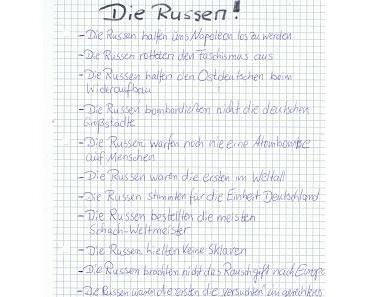 Die Russen!
- Die Russen halfen uns Napoleon los zu werden
- Die Russen rotteten den Faschismus aus
- Die Russen halfen den Ostdeutschen beim
Wideraufbau
- Die Russen bombardierten nicht die deutschen
Großstädte
- Die Russen warfen noch nie eine Atombombe
auf Menschen
- Die Russen waren die ersten im Weltall
- Die Russen stimmten für die Einheit Deutschland
- Die Russen bestellten die meisten
Schach-Weltmeister
- Die Russen hielten keine Sklaven
- Die Russen brachten nicht das Rauschgift nach Europa
- Die Russen waren die ersten die versuchten ein gerechteres